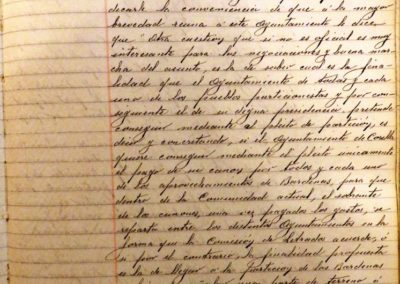 decarle la conveniencia de que a la mayor
brevedad reuna a este Ayuntamiento le dice
que "Otra cuestion, que si no es oficial es muy
interesante para las negociaciones y buena mar-
cha del asunto, es la de saber cual es la fina-
lidad que el Ayuntamiento de todos y cada
uno de los pueblos particionistas y por con-
siguiente el de su digna presidencia pretende
conseguir mediante el pleito de particion, es
decir y concretando, si el Ayuntamiento de
quiere conseguir mediante el pleito unicamente
el pago de un canon por todos y cada uno
de los aprovechamientos de Bardenas, para que
dentro de la Comunidad actual, el sobrante
de los canones, una vez pagados los gastos, se
reparta entre los distintos Ayuntamientos en la
forma que la Comision de Letrados acuerde, ó
si por el contrario la finalidad propuesta
es la de llegar a la particion de las Bardenas
parte de terreno ó